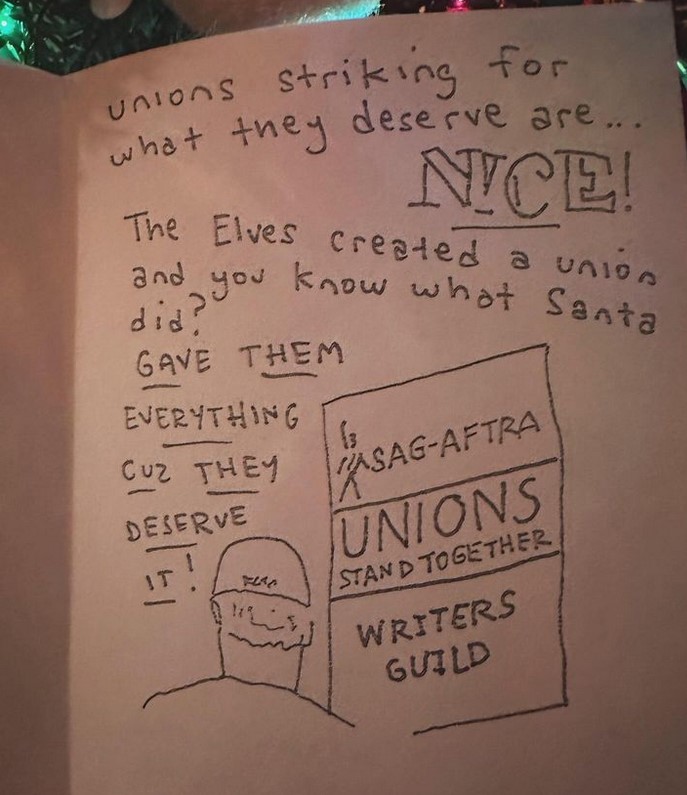 unions striking for
what they deserve are...
NICE!
The Elves created a union
and you know what Santa
did?
GAVE THEM
EVERYTHING
CUZ THEY
DESERVE
IT!
SAG-AFTRA
UNIONS
STAND TOGETHER
WRITERS
GUILD